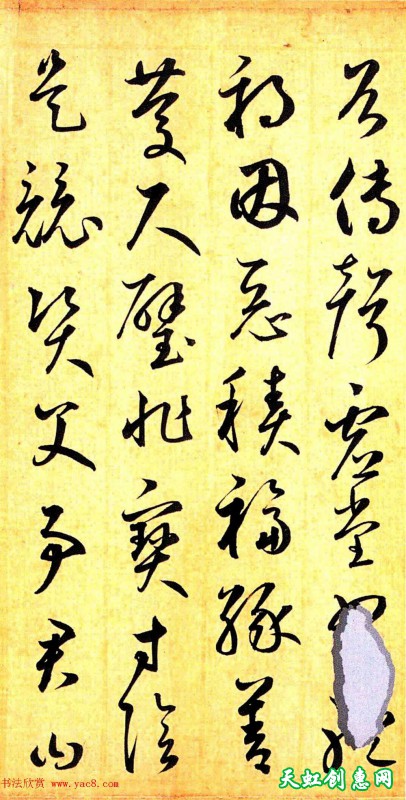 谷傳聲虛堂
禍因惡積福緣善
慶尺璧非寶寸陰
是競資父事君曰
书法欣赏 www.yac8.com
天虹创惠网